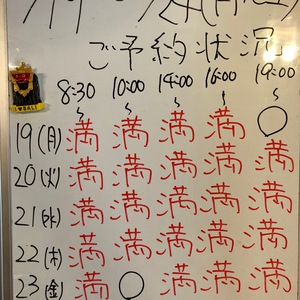 ご予約状況
8:30 10:00 14:00 16:00 19:00
19(月) 満 満 満 満 ○
20(火) 満 満 満 満 満
21(水) 満 満 満 満 満
22(木) 満 満 満 満 満
23(金) 満 ○ 満 満 満
BALI